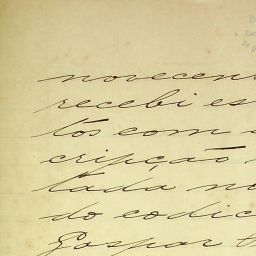 novecen
recebi es
tos com a
cripção
tada no
do codic
Gaspar